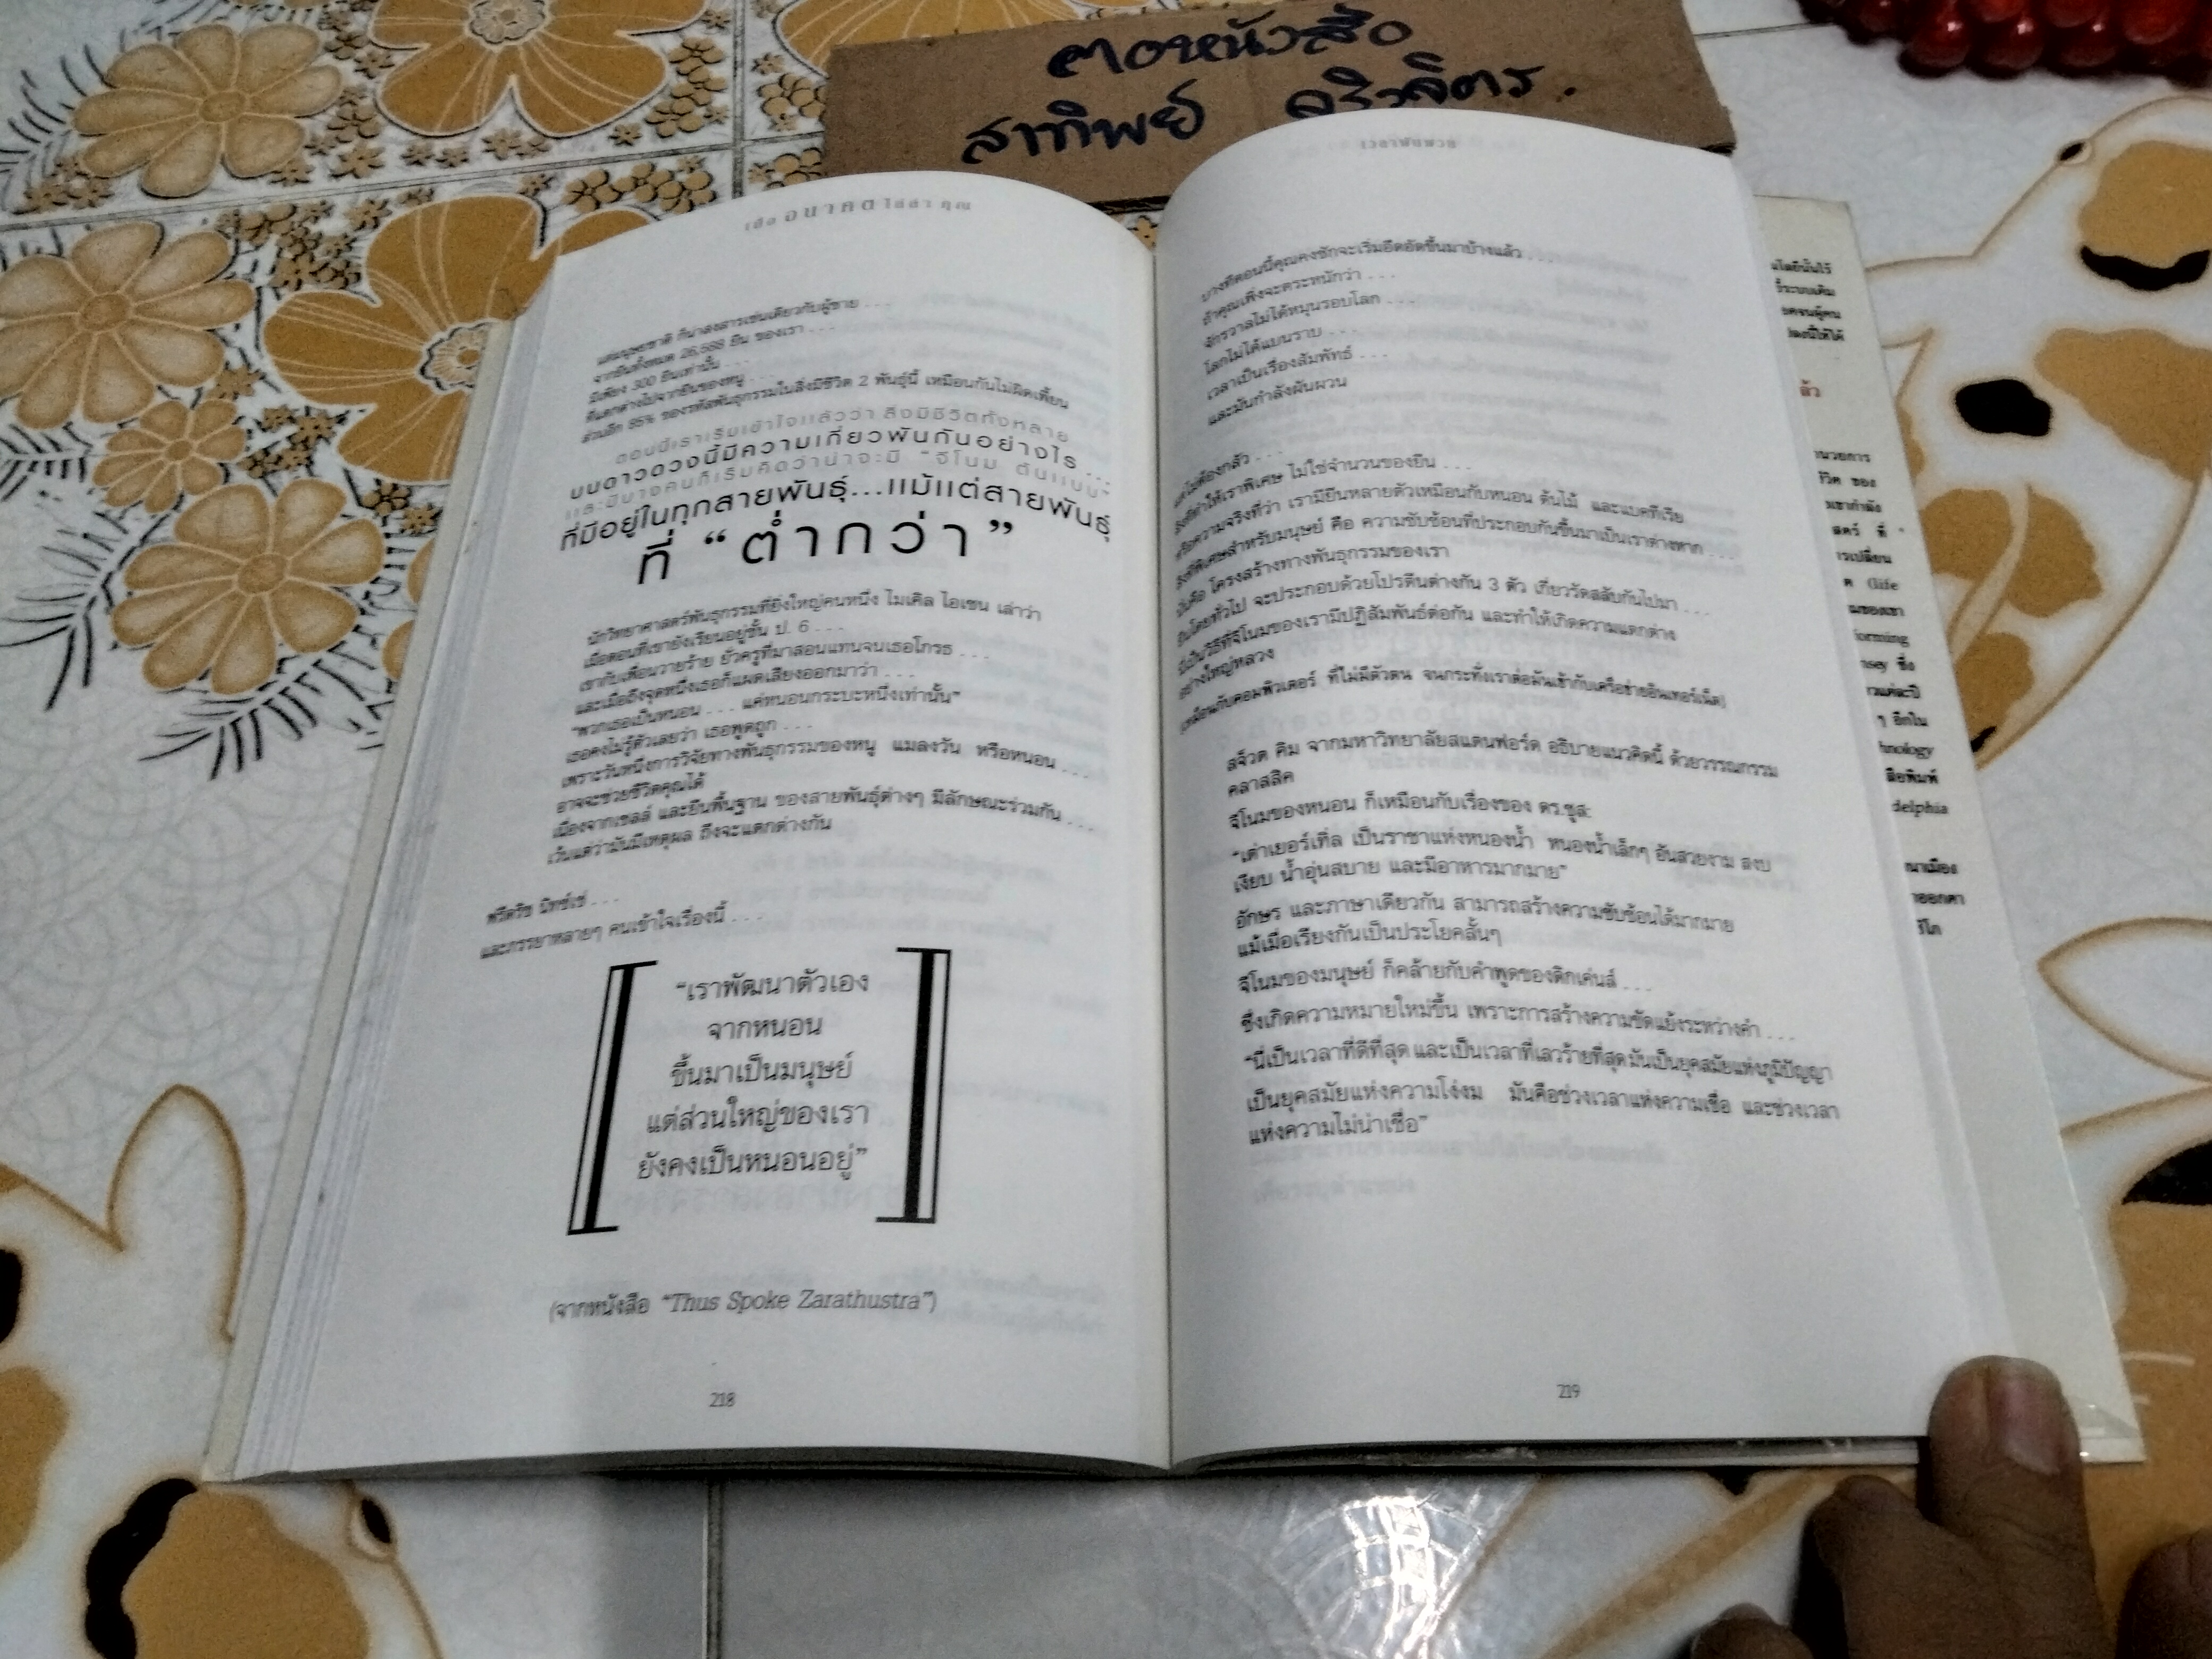 ฅอหนังสือ
สาทิพย์
เมื่อ อนาคต ไล่ล่า คุณ
แต่มนุษยชาติ ก็น่าสงสารเช่นเดียวกับผู้ชาย . . .
จากยีนทั้งหมด 26,588 ยีน ของเรา . . .
มีเพียง 300 ยีนเท่านั้น . . .
ที่แตกต่างไปจากยีนของหนู . . .
ของรหัสพันธุกรรมในสิ่งมีชีวิต 2 พันธุ์นี้ เหมือนกันไม่ผิดเพี้ยน
ตอนนี้เราเริ่มเข้าใจแล้วว่า สิ่งมีชีวิตทั้งหลาย
บนดาวดวงนี้มีความเกี่ยวพันกันอย่างไร ...
และมีบางคนก็เริ่มคิดว่าน่าจะมี "จีโนม ต้นแบบ"
ที่มีอยู่ในทุกสายพันธุ์...แม้แต่สายพันธุ์
ที่ “ต่ำกว่า”
นักวิทยาศาสตร์พันธุกรรมที่ยิ่งใหญ่คนหนึ่ง ไมเคิล ไอเซน เล่าว่า
เมื่อตอนที่เขายังเรียนอยู่ชั้น ป. 6 . . .
เขากับเพื่อนวายร้าย ยั่วครูที่มาสอนแทนจนเธอโกรธ . . .
และเมื่อถึงจุดหนึ่งเธอก็แผดเสียงออกมาว่า . . .
“พวกเธอเป็นหนอน . . . แค่หนอนกระบะหนึ่งเท่านั้น”
เธอคงไม่รู้ตัวเลยว่า เธอพูดถูก . . .
เพราะวันหนึ่งการวิจัยทางพันธุกรรมของหนู แมลงวัน หรือหนอน . . .
อาจจะช่วยชีวิตคุณได้
เนื่องจากเซลล์ และยีนพื้นฐาน ของสายพันธุ์ต่างๆ มีลักษณะร่วมกัน . . .
เว้นแต่ว่ามันมีเหตุผล ถึงจะแตกต่างกัน
ฟรีดริช นิทซ์เช่ . . .
และภรรยาหลายๆ คนเข้าใจเรื่องนี้ . . .
“เราพัฒนาตัวเอง
จากหนอน
ขึ้นมาเป็นมนุษย์
แต่ส่วนใหญ่ของเรา
ยังคงเป็นหนอนอยู่”
(จากหนังสือ “Thus Spoke Zarathustra”)
218
เวลาผันผวน
บางทีตอนนี้คุณคงชักจะเริ่มอึดอัดขึ้นมาบ้างแล้ว . . .
ถ้าคุณเพิ่งจะตระหนักว่า . . .
จักรวาลไม่ได้หมุนรอบโลก . . .
โลกไม่ได้แบนราบ . . .
เวลาเป็นเรื่องสัมพัทธ์ . . .
และมันกำลังผันผวน
แต่ไม่ต้องกลัว . . .
สิ่งที่ทำให้เราพิเศษ ไม่ใช่จำนวนของยีน . . .
หรือความจริงที่ว่า เรามียีนหลายตัวเหมือนกับหนอน ต้นไม้ และแบคทีเรีย
สิ่งที่พิเศษสำหรับมนุษย์ คือ ความซับซ้อนที่ประกอบกันขึ้นมาเป็นเราต่างหาก . . .
นั่นคือ โครงสร้างทางพันธุกรรมของเรา
ยีนโดยทั่วไป จะประกอบด้วยโปรตีนต่างกัน 3 ตัว เกี่ยวรัดสลับกันไปมา . . .
นี่เป็นวิธีที่จีโนมของเรามีปฏิสัมพันธ์ต่อกัน และทำให้เกิดความแตกต่าง
อย่างใหญ่หลวง
(เหมือนกับคอมพิวเตอร์ ที่ไม่มีตัวตน จนกระทั่งเราต่อมันเข้ากับเครือข่ายอินเทอร์เน็ต)
สจ็วต คิม จากมหาวิทยาลัยสแตนฟอร์ด อธิบายแนวคิดนี้ ด้วยวรรณกรรม
คลาสสิค
จีโนมของหนอน ก็เหมือนกับเรื่องของ ดร.ซูส:
“เต่าเยอร์เทิ่ล เป็นราชาแห่งหนองน้ำ หนองน้ำเล็กๆ อันสวยงาม สงบ
เงียบ น้ำอุ่นสบาย และมีอาหารมากมาย”
อักษร และภาษาเดียวกัน สามารถสร้างความซับซ้อนได้มากมาย
แม้เมื่อเรียงกันเป็นประโยคสั้นๆ
จีโนมของมนุษย์ ก็คล้ายกับคำพูดของดิกเค่นส์ . . .
ซึ่งเกิดความหมายใหม่ขึ้น เพราะการสร้างความขัดแย้งระหว่างคำ . . .
“นี่เป็นเวลาที่ดีที่สุด และเป็นเวลาที่เลวร้ายที่สุด มันเป็นยุคสมัยแห่งภูมิปัญญา
เป็นยุคสมัยแห่งความโง่งม มันคือช่วงเวลาแห่งความเชื่อ และช่วงเวลา
แห่งความไม่น่าเชื่อ”
219